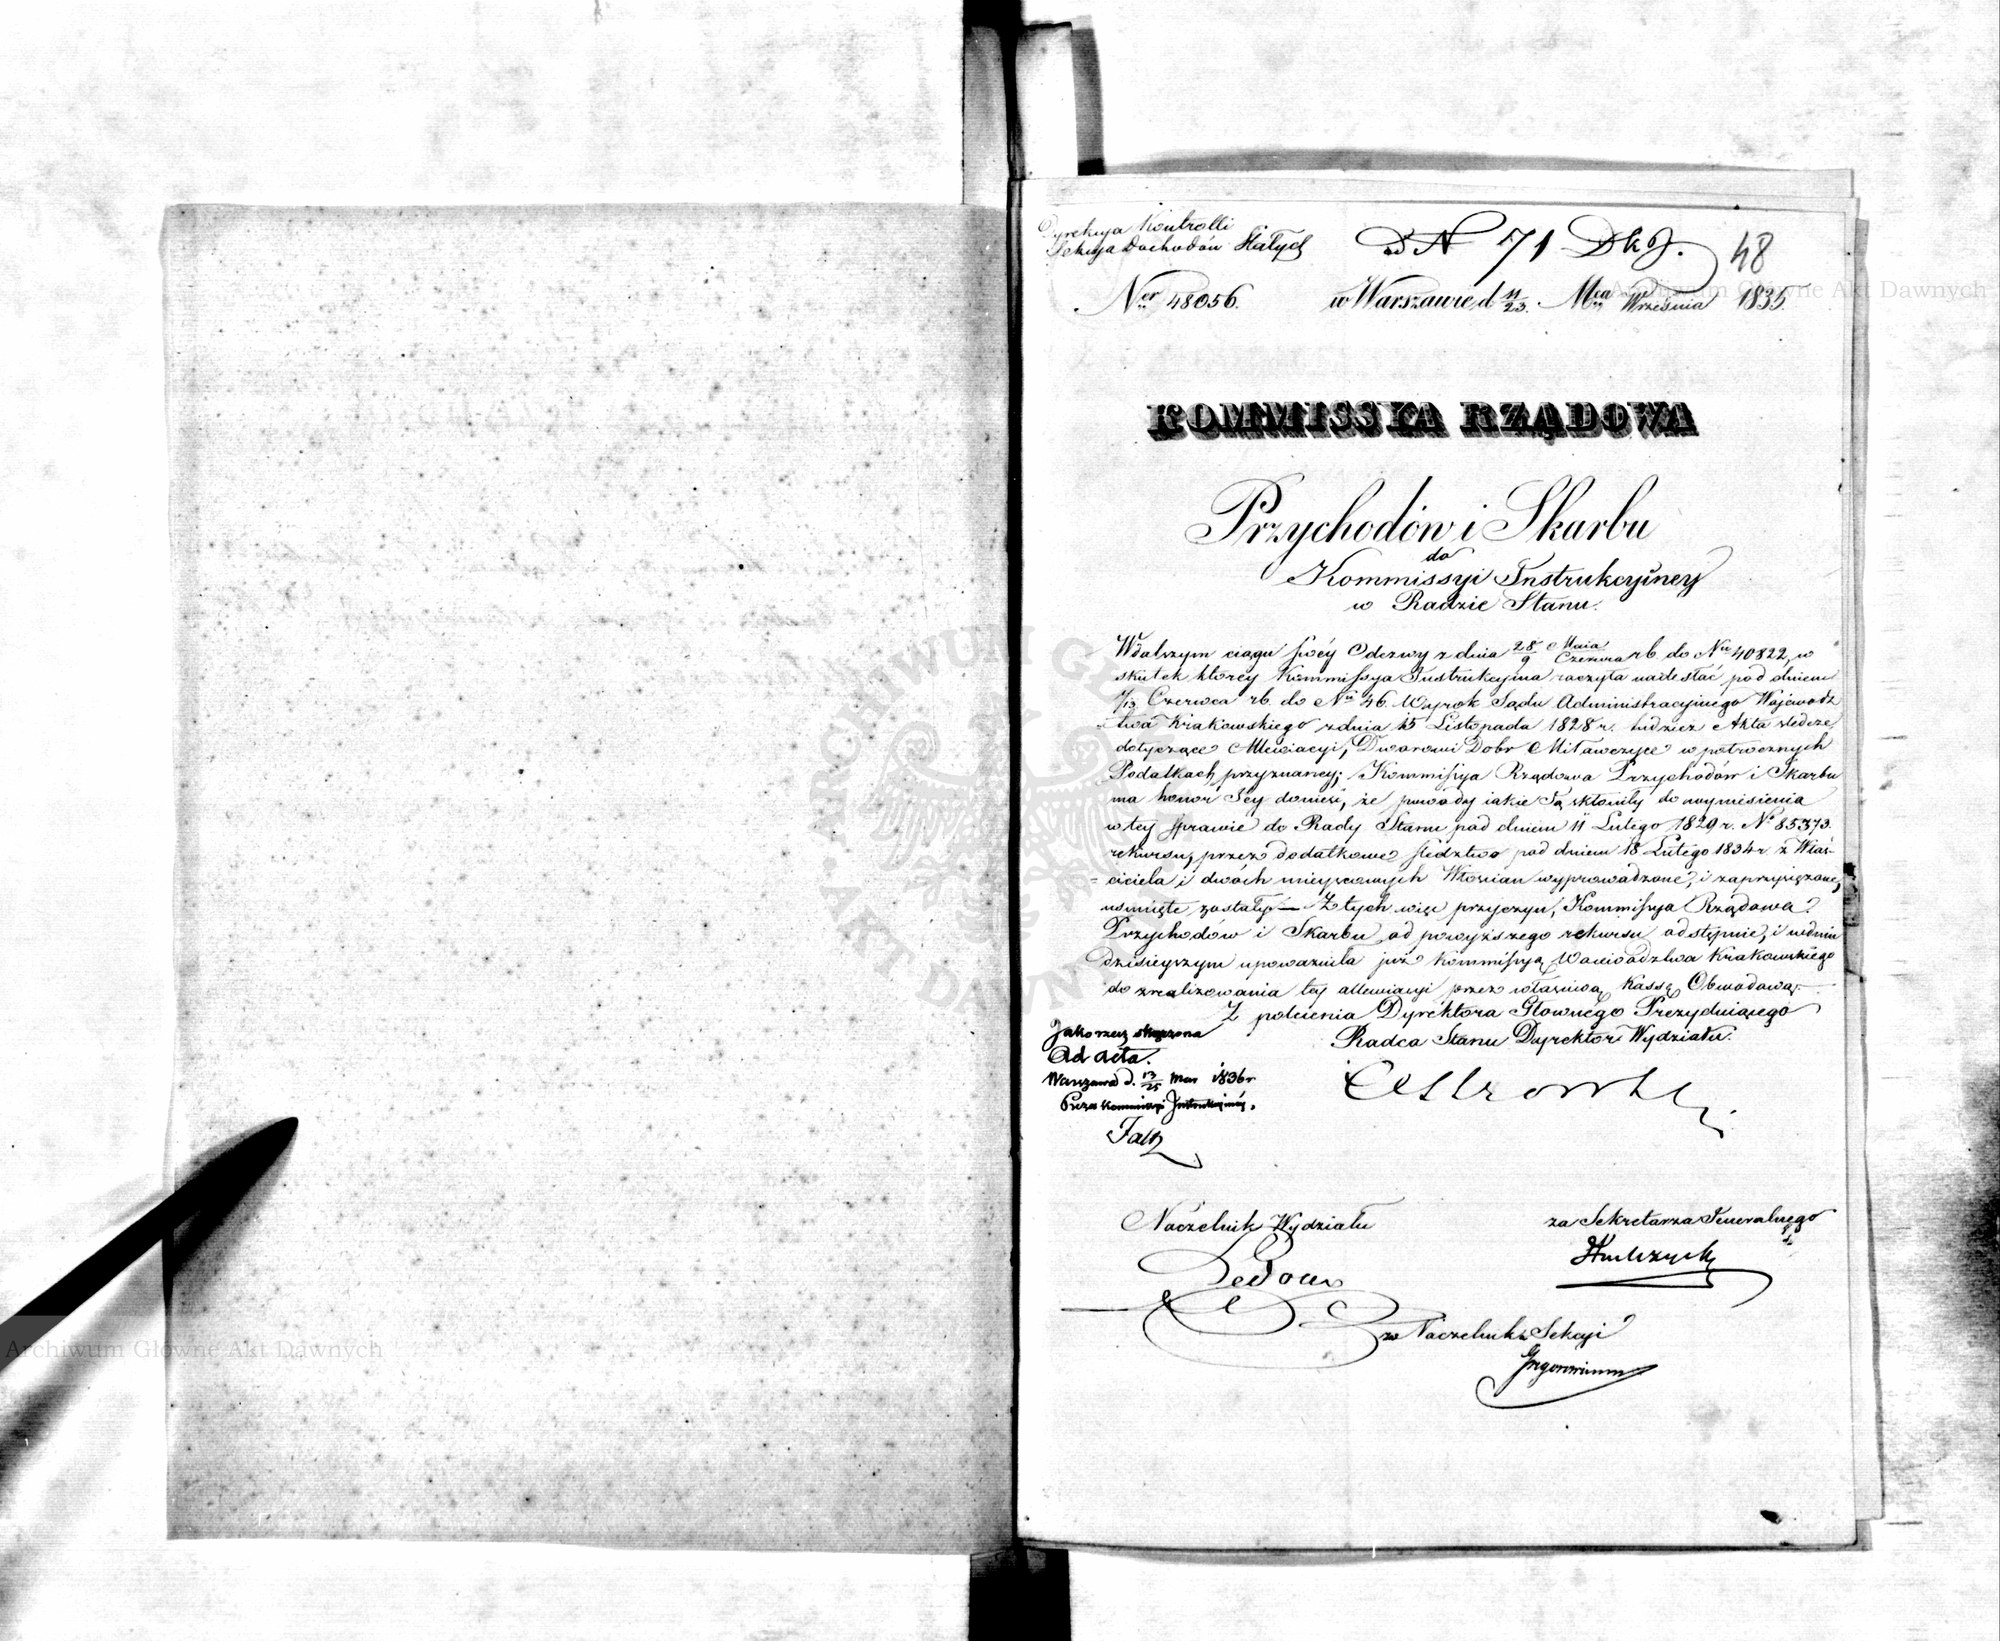 Dyrekcya Kontrolli
Sekcya Dochodów Stałych
ad N 71 DkJ.
48
Ner 48056.
w Warszawie d 11/23. Mca Września 1835.
KOMMISSYA RZĄDOWA
Przychodów i Skarbu
do
Kommissyi Instrukcyiney
w Radzie Stanu.
W dalszym ciągu swéy Odezwy z dnia 28/9 Maia/Czerwca r.b. do Nru 40822, w
skutek którey Kommissya Instrukcyina raczyła nadesłać pod dniem
1/13 Czerwca rb. do Nru 46. Wyrok Sądu Administracyinego Wojewódz
-twa Krakowskiego z dnia 15 Listopada 1828 r. tudzież Akta śledcze
dotyczące Allewiacyi, Dworowi Dobr Miławczyce w potrocznych
Podatkach przyznaney; Kommissya Rządowa Przychodów i Skarbu
ma honor Jey donieść, że powody iakie Ją skłoniły do wyniesienia
w tey sprawie do Rady Stanu pod dniem 11 Lutego 1829 r. No 85373.
rekursu, przez dodatkowe śledztwo pod dniem 18 Lutego 1834 r. z Właś-
-ciciela i dwóch mieyscowych Włościan wyprowadzone, i zaprzysiężone,
usunięte zostały — Z tych więc przyczyn, Kommissya Rządowa
Przychodów i Skarbu od powyższego rekursu odstępuie, i w dniu
dzisieyszym upoważniła już Kommissyą Woiewództwa Krakowskiego
do zrealizowania tey allewiacyi przez właściwą Kassę Obwodową.
Z polecenia Dyrektora Głownego Prezyduiącego
Radca Stanu Dyrektor Wydziału.
Jako rzecz skończona
Ad acta.
Warszawa d. 13/25 Mar 1836 r
Prezes Kommissyi Instrukcyinéy.
Naczelnik Wydziału
za Sekretarza Jeneralnego
za Naczelnika Sekcyi
Archiwum Główne Akt Dawnych
Archiwum Główne Akt Dawnych